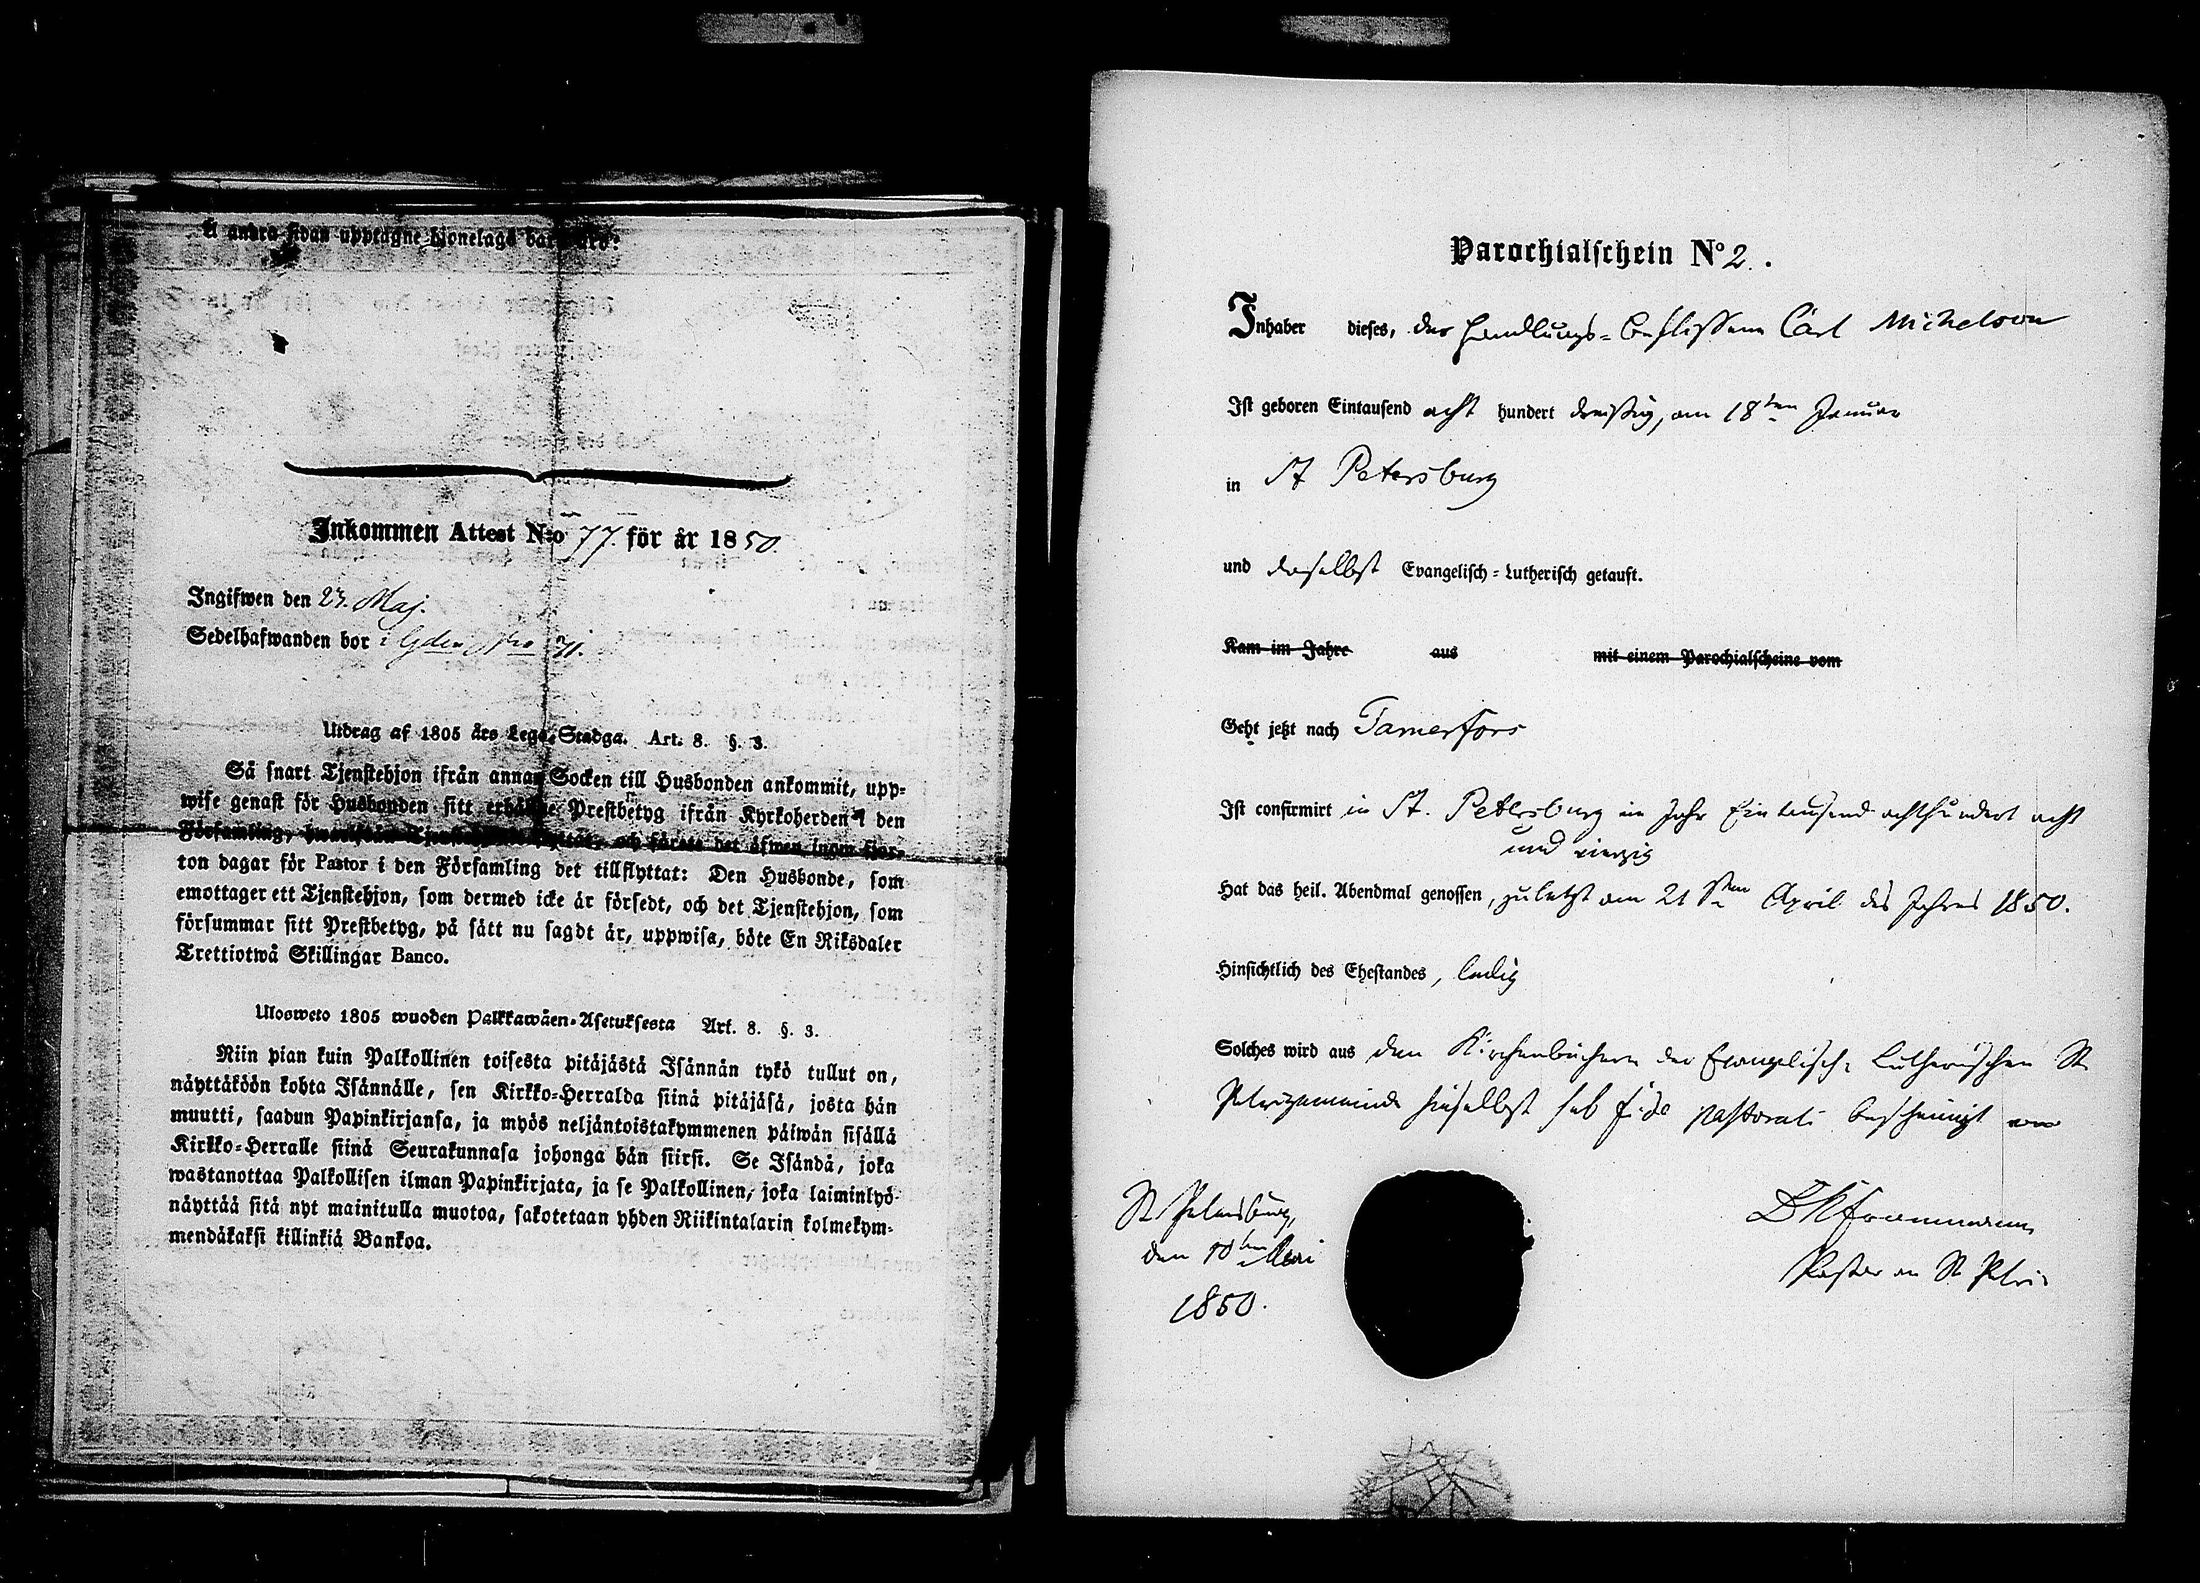 å andra sidan upptagne hjonelags barn äro:
Inkommen Attest N:o 77. för år 1850.
Ingifwen den 23. Maj.
Sedelhafwanden bor i Gden Nro 71.
Utdrag af 1805 års Lego-Stadga. Art. 8. §. 3.
Så snart Tjenstehjon ifrån annan Socken till Husbonden ankommit, upp-
wise genast för Husbonden sitt erhållne Prestbetyg ifrån Kyrkoherden i den
Församling, hwarifrån Tjenstehjonet flyttat, och förete det äfwen inom fjor-
ton dagar för Pastor i den Församling det tillflyttat: Den Husbonde, som
emottager ett Tjenstehjon, som dermed icke är försedt, och det Tjenstehjon, som
försummar sitt Prestbetyg, på sätt nu sagdt är, uppwisa, böte En Riksdaler
Trettiotwå Skillingar Banco.
Ulosweto 1805 wuoden Palkkawäen-Asetuksesta Art. 8. §. 3.
Niin pian kuin Palkollinen toisesta pitäjästä Isännän tykö tullut on,
näyttäköön kohta Isännälle, sen Kirkko-Herralda siinä pitäjäsä, josta hän
muutti, saadun Papinkirjansa, ja myös neljäntoistakymmenen päiwän sisällä
Kirkko-Herralle siinä Seurakunnasa johonga hän siirsi. Se Isändä, joka
wastanottaa Palkollisen ilman Papinkirjata, ja se Palkollinen, joka laiminlyö
näyttää sitä nyt mainitulla muotoa, sakotetaan yhden Riikintalarin kolmekym-
mendäkaksi killinkiä Bankoa.
Parochialschein No 2.
Inhaber dieses, der Handlungs-Beflissene Carl Michelson
Ist geboren Eintausend acht hundert dreißig, am 18ten Januar
in St Petersburg
und daselbst Evangelisch-Lutherisch getauft.
Kam im Jahre aus mit einem Parochialscheine vom
Geht jetzt nach Tamerfors
Ist confirmirt in St. Petersburg im Jahr Eintausend achthundert acht
und vierzig
Hat das heil. Abendmal genossen, zuletzt am 21sten April des Jahres 1850.
Hinsichtlich des Ehestandes, ledig
Solches wird aus den Kirchenbüchern der Evangelisch-Lutherischen St.
Petrigemeinde hieselbst sub fide pastorali bescheinigt von
St. Petersburg,
den 10ten Mai
1850.
Pastor an St Petri